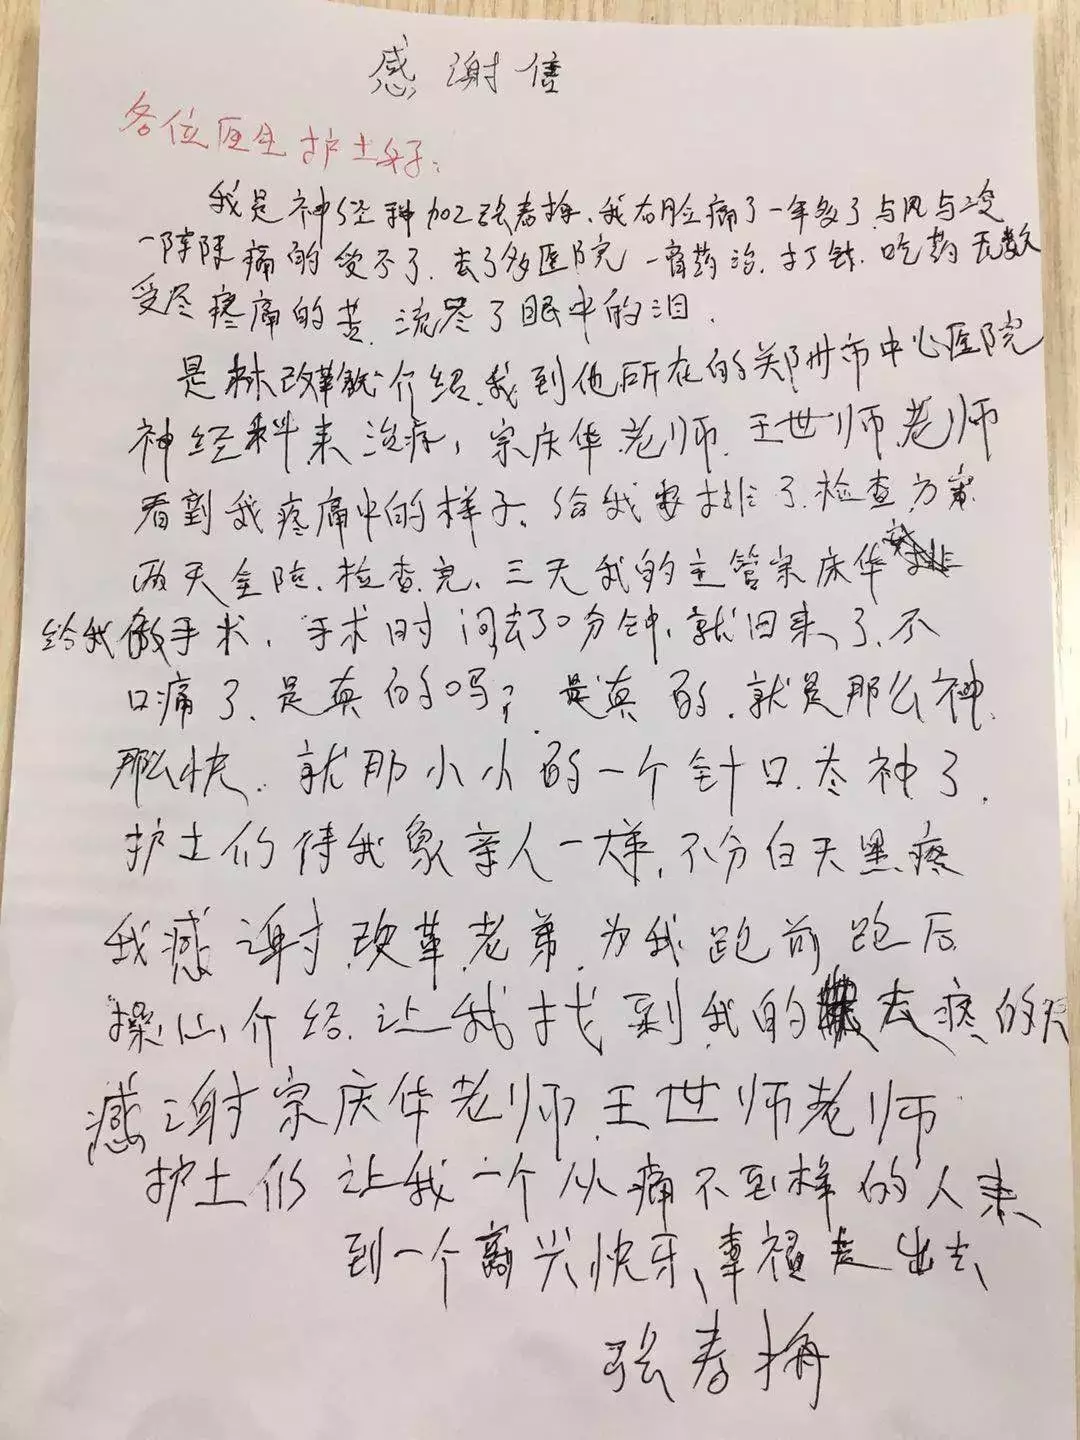 感谢信
各位医生护士好：
我是神经科加2张春梅、我右脸痛了一年多了与风与冷
一阵阵痛的受不了.去了多医院一膏药治.打针.吃药无数
受尽疼痛的苦.流尽了眼中的泪.
是林改革介绍.我到他所在的郑州市中心医院
神经科来治疗，宗庆华老师.王世师老师
看到我疼痛中的样子.给我安排了检查方案
两天全陪.检查完、三天我的主管宗庆华安排
给我做手术.手术时间去了0分钟.就回来了.不
口痛了.是真的吗？是真的.就是那么神.
那么快.就那小小的一个针口.太神了.
护士们待我象亲人一样.不分白天黑夜
我感谢改革老弟.为我跑前跑后
操心介绍.让我找到我的去疼的
感谢宗庆华老师.王世师老师
护士们让我一个从痛不到样的人来
到一个高兴快乐、幸福走出去
张春梅